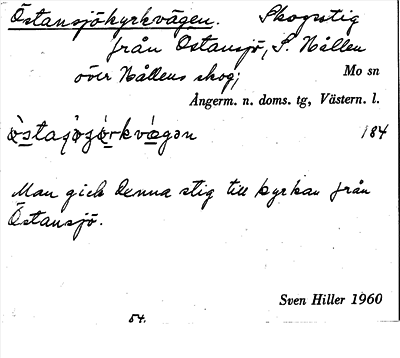 Östansjökyrkvägen. Skogsstig
från Östansjö, S. Nållen
över Nållens skog;
Mo sn
Ångerm. n. doms. tg, Västern. l.
184
Man gick denna stig till kyrkan från
Östansjö.
Sven Hiller 1960
54.